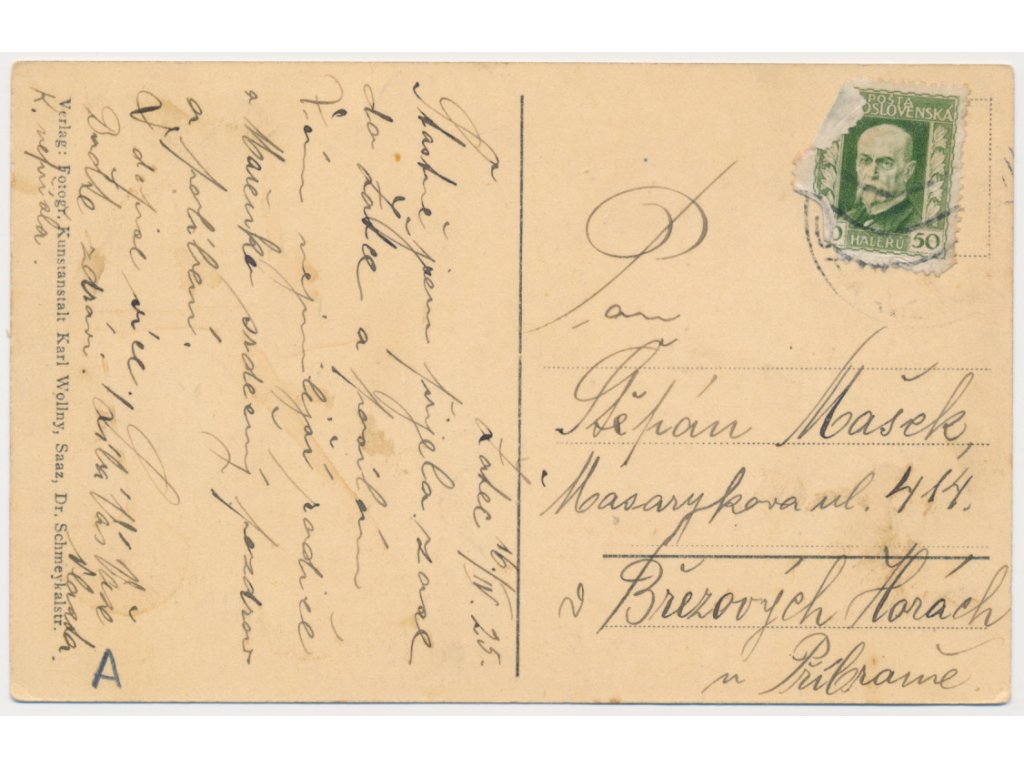 Žatec 16./IV. 25.
Šťastně jsem přijela zase
do Žatce a posílám
Vám nejmilejší rodiče
a Mařenko srdečný pozdrav
a políbení.
V dopise více.
Buďte zdrávi. Vás Vaše
Vlasta.
K. nepsala.
Verlag: Fotogr. Kunstanstalt Karl Wollny, Saaz, Dr. Schmeykalstr.
A
POŠTA
OSLOVENSKÁ
HALÉŘŮ 50
Pan
Štěpán Mašek,
Masarykova ul. 414.
v Březových Horách
u Příbramě.